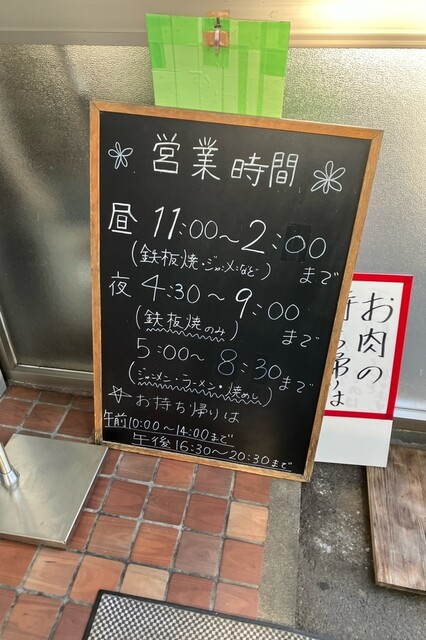 営業時間
昼 11:00～2:00
(鉄板焼・ジャンメンなど) まで
夜 4:30～9:00
(鉄板焼のみ) まで
5:00～8:30まで
(ジャンメン・ラーメン・焼めし)
☆お持ち帰りは
午前10:00～14:00まで
午後16:30～20:30まで
お肉の
帰りは